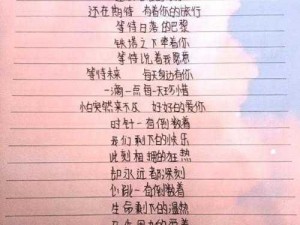 还在期待 有着你的旅行
等待日落的巴黎
铁塔之下牵着你
等待说着我愿意
等待未来 每天身边有你
一滴一点每一天珍惜
怕突然来不及 好好的爱你
时针一直倒数着
我们剩下的快乐
此刻相拥的狂热
却永远都深刻
心跳一直倒数着
生命剩下的温热